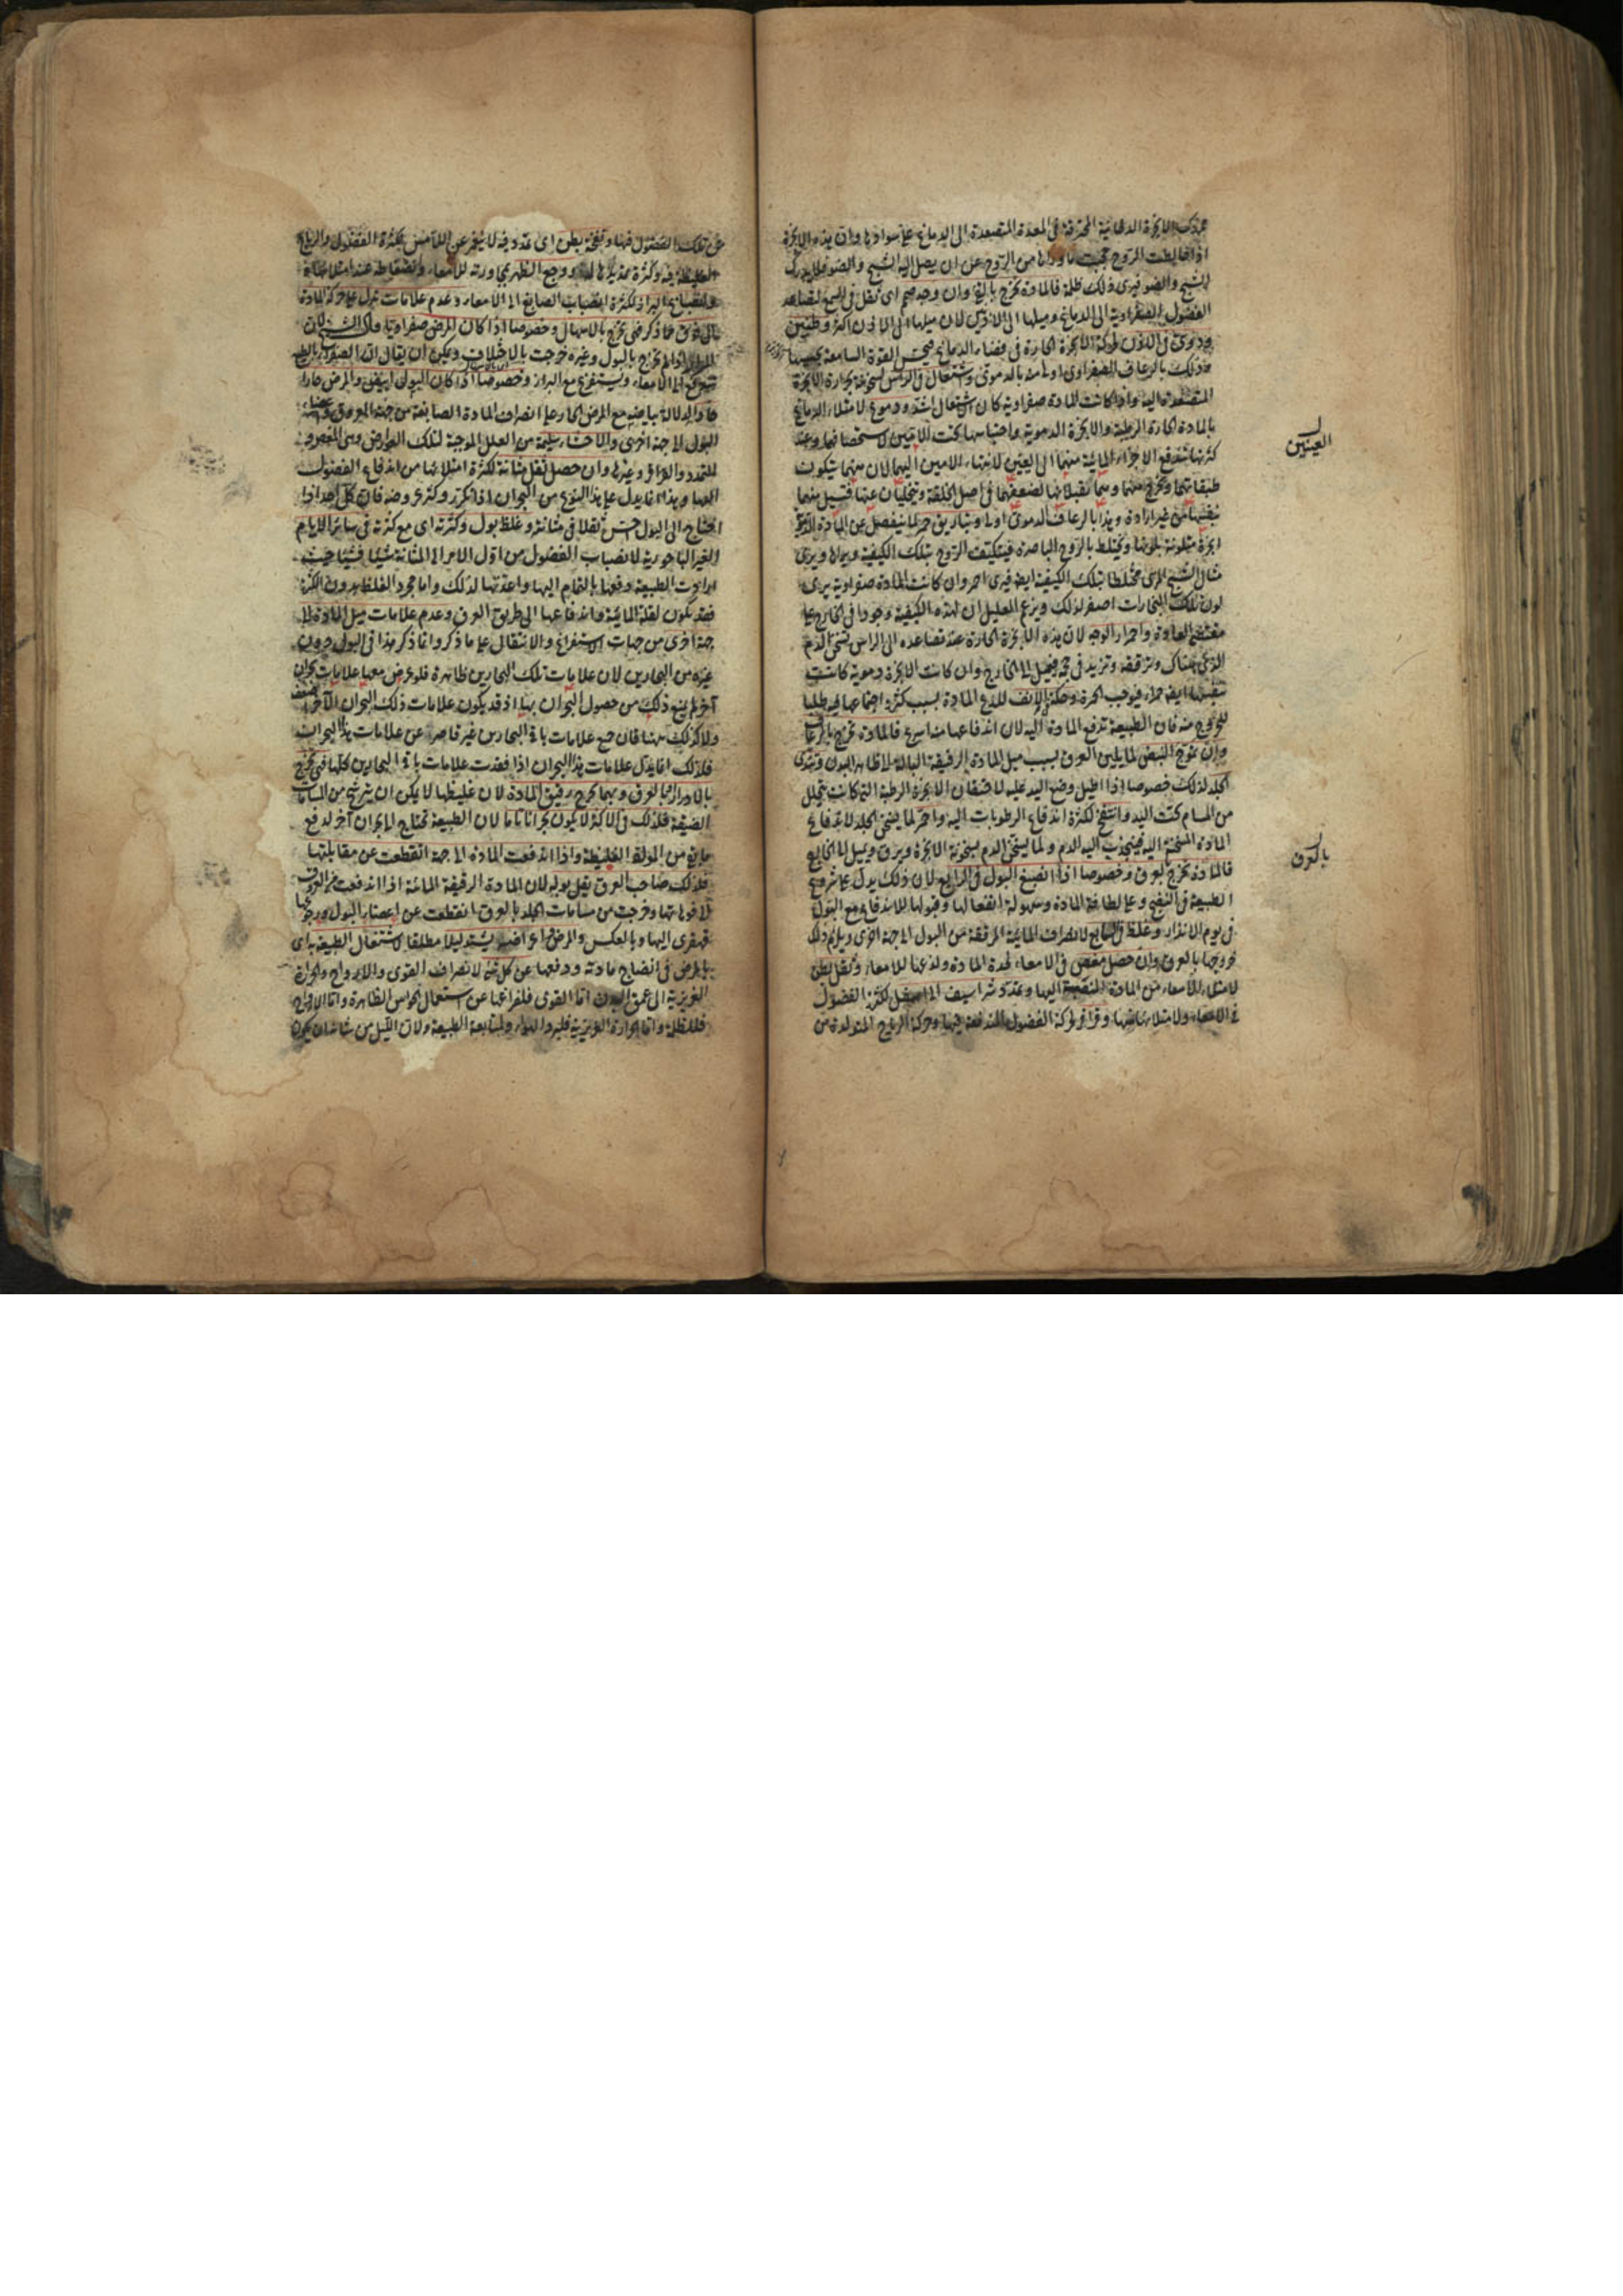 الابخرة الدخانية المحترقة في المعدة المتصعدة الى الدماغ على سوادها وان هذه الابخرة
اذا خالطت الروح حجبت ما وراءها من الروح عن ان يصل اليه الشبح والضوء فلا يدرك
الشبح والضوء فيرى ذلك ظلمة فالمادة تخرج بالقئ وان وجد صمم اى ثقل في السمع لتصاعد
الفضول الصفراوية الى الدماغ وميلها الى الاذنين لان ميلها الى الاذن اكثر وطنين
ودوى في الاذن لحركة الابخرة الحارة في فضاء الدماغ فتحس القوة السامعة
فذلك بالرعاف الصفراوى اولى منه بالدموى واشتعال في الراس لسخونة بحرارة الابخرة
المتصعدة اليه واذا كانت المادة صفراوية كان الاشتعال اشد ودموع لامتلاء الدماغ
بالمادة الحارة الرطبة والابخرة الدموية واحتباسها تحت الامين وعند
كثرتها تندفع الاجزاء المائية منها الى العينين لانتهاء الامين اليهما لان منهما يتكون
طبقاتهما وتخرج منها وسما تقبلانها لضعفهما في اصل الخلقة وتتخليان عنها فتسيل منهما
بنفسها من غير ارادة وهذا بالرعاف الدموى اولى وتباريق حمر لما ينفصل عن المادة الدموية
ابخرة متلونة بلونها وتختلط بالروح الباصرة فيتكيف الروح بتلك الكيفية ويراها ويرى
مثال الشبح المرئى مختلطا بتلك الكيفية ايضا فيرى احمر وان كانت المادة صفراوية يرى
لون تلك البخارات اصفر لذلك ويزعم العليل ان لهذه الكيفية وجودا في الخارج على
مقتضى العادة واحمرار الوجه لان هذه الابخرة الحارة عند تصاعدها الى الراس تسخن الدم
الذى هناك وترققه وتزيد في حجمه فيميل الى الخارج وان كانت الابخرة دموية كانت
بنفسها ايضا حمراء فيوجب الحمرة وحكة الانف للذع المادة بسبب كثرة اجتماعها فيه طلبا
للخروج منه فان الطبيعة تدفع المادة اليه لان اندفاعها منه اسرع فالمادة تخرج بالرعاف
وان تموج النبض لما يلين العرق بسبب ميل المادة الرقيقة البالة الى ظاهر البدن وتندى
الجلد لذلك خصوصا اذا اطيل وضع اليد عليه لاختقان الابخرة الرطبة التى كانت تتحلل
من المسام تحت اليد وانتفخ لكثرة اندفاع الرطوبات اليه واحمر لما يسخن الجلد لاندفاع
المادة المسخنة اليه فينجذب اليه الدم ولما يسخن الدم بسخونة الابخرة ويرق ويميل الى الخارج
فالمادة تخرج بعرق وخصوصا اذا انصبغ البول في الرابع لان ذلك يدل على شروع
الطبيعة في النضج وعلى لطافة المادة وسهولة انفعالها وقبولها للاندفاع مع البول
في يوم الانذار وغلظ في السابع لانصراف المائية المرققة من البول الى جهة اخرى ويلزم ذلك
خروجها بالعرق وان حصل مغص في الامعاء لحدة المادة ولذعها للامعاء وثقل بطن
لامتلاء الامعاء من المادة المنصبة اليها وتمدد شراسيف الى اسفل لكثرة الفضول
في الامعاء ولامتلائها منها وقراقر لحركة الفضول المندفعة فيها وحركة الرياح المتولدة من
العينين
بالعرق
عن تلك الفضول فيها ونفخة بطن اى تمدد فيه لا ينغمز عن اللامس لكثرة الفضول والرياح
الغليظة فيه وكثرة تمديدها له ووجع الظهر لمجاورته للامعاء وانضغاطه عند امتلائها
وانصباغ البراز لكثرة انصباب الصابغ الى الامعاء وعدم علامات تدل على حركة المادة
الى فوق مما ذكر فهى تخرج بالاسهال وخصوصا اذا كان المرض صفراويا
المرار اذا لم يخرج بالبول وغيره خرجت بالاختلاف ويمكن ان يقال ان الصفراء بالطبع
تندفع الى الامعاء ويستفرغ مع البراز وخصوصا اذا كان البول ابيض والمرض حارا
حادا لدلالة بياضه مع المرض الحار على انصراف المادة الصابغة من جهة العروق
البول الى جهة اخرى والاحشاء سليمة من العلل الموجبة لتلك العوارض وهى المغص و
التمدد والقراقر وغيرها وان حصل ثقل مثانة لكثرة امتلائها من اندفاع الفضول
اليها وهذا انما يدل على هذا النوع من البحران اذا تكرر وكثر عروضه فان كل احد اذا
احتاج الى البول احس ثقلا في مثانته وغلظ بول وكثرته اى مع كثرته في سائر الايام
الغير الباحورية لانصباب الفضول من اول الامر الى المثانة شيئا فشيئا حيث
ارادت الطبيعة دفعها بالتمام اليها واعدتها لذلك واما مجرد الغلظ بدون الكثرة
فقد يكون لقلة المائية واندفاعها الى طريق العرق وعدم علامات ميل المادة الى
جهة اخرى من جهات الاستفراغ والانتقال على ما ذكر وانما ذكر هذا في البول دون
غيره من البحارين لان علامات تلك البحارين ظاهرة فلو عرض معها علامات بحران
آخر لم يمنع ذلك من حصول البحران بها اذ قد يكون علامات ذلك البحران الآخر اضعف
ولا كذلك ههنا فان جميع علامات باقى البحارين غير قاصر عن علامات هذا البحران
فلذلك انما يدل علامات هذا البحران اذا فقدت علامات باقى البحارين كلها فهى تخرج
بالادرار اما العرق وبما يخرج رقيق المادة لان غليظها لا يمكن ان يترشح من المسامات
الضيقة فلذلك في الاكثر لا يكون بحرانا تاما لان الطبيعة تحتاج الى بحران آخر لدفع
ما بقى من المواد الغليظة واذا اندفعت المادة الى جهة انقطعت عن مقابلتها
فلذلك صاحب العرق يقل بوله لان المادة الرقيقة المائية اذا اندفعت من العروق
الى فوهاتها وخرجت من مسامات الجلد بالعرق انقطعت عن اعضاء البول ورجوعها
قهقرى اليها وبالعكس والمرض واعراضه يشتد ليلا مطلقا لاشتغال الطبيعة باى
بالمرض في انضاج مادته ودفعها عن كل شئ لانصراف القوى والارواح والحرارة
الغريزية الى عمق البدن اما القوى فلفراغها عن استعمال الحواس الظاهرة واما الارواح
فللظلمة واما الحرارة الغريزية فلبرد الهواء ولمتابعة الطبيعة ولان الليل من شانه ان يكون